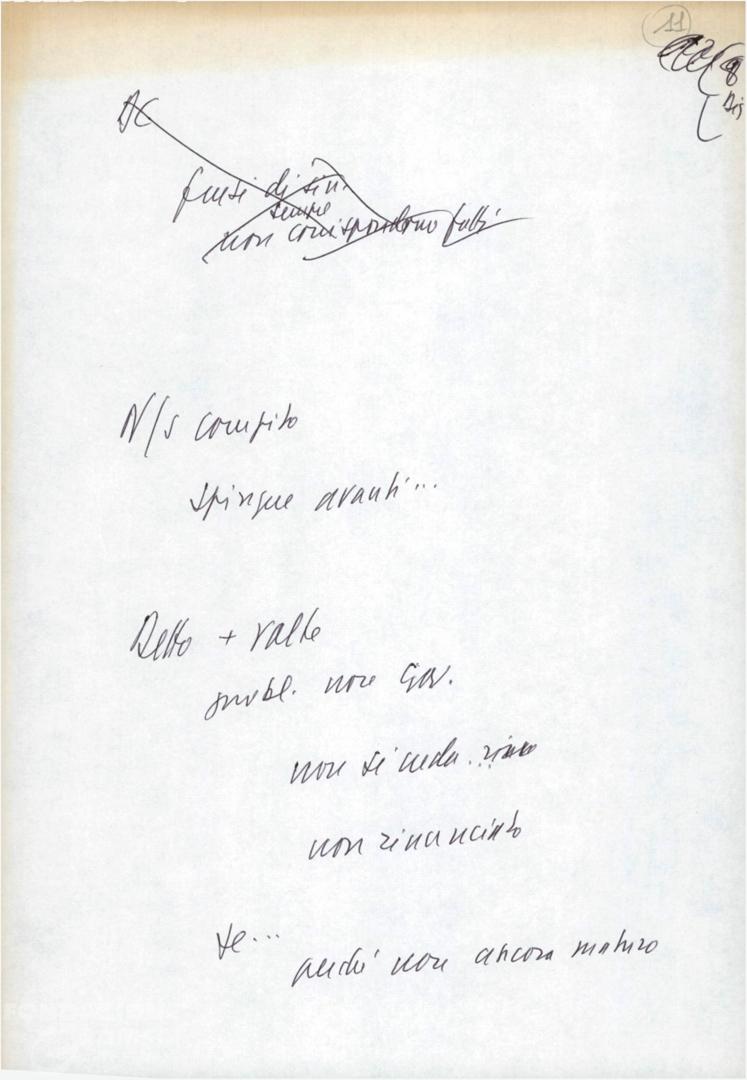 11
8
Bis
DC
frasi di sin.
sempre
non corrispondono fatti
N/s compito
spingere avanti...
Detto + volte
probl. non gov.
non si creda
non rinunciato
se...
perché non ancora maturo